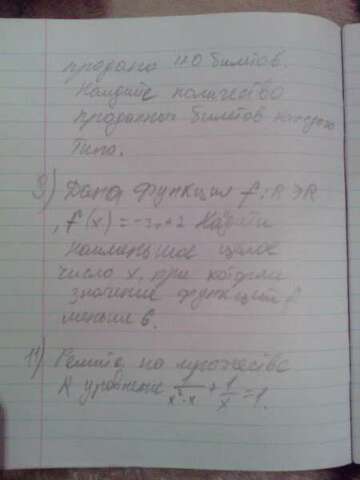 продано 110 билетов.
Найдите количество
проданных билетов каждого
типа.
9) Дана функция f: R→R
, f(x) = -3x+2 Найти
наименьшое целое
число x, при котором
значение функции f
меньше 6.
11) Решите на множестве
R уравнение 1/(x²-x) + 1/x = 1.